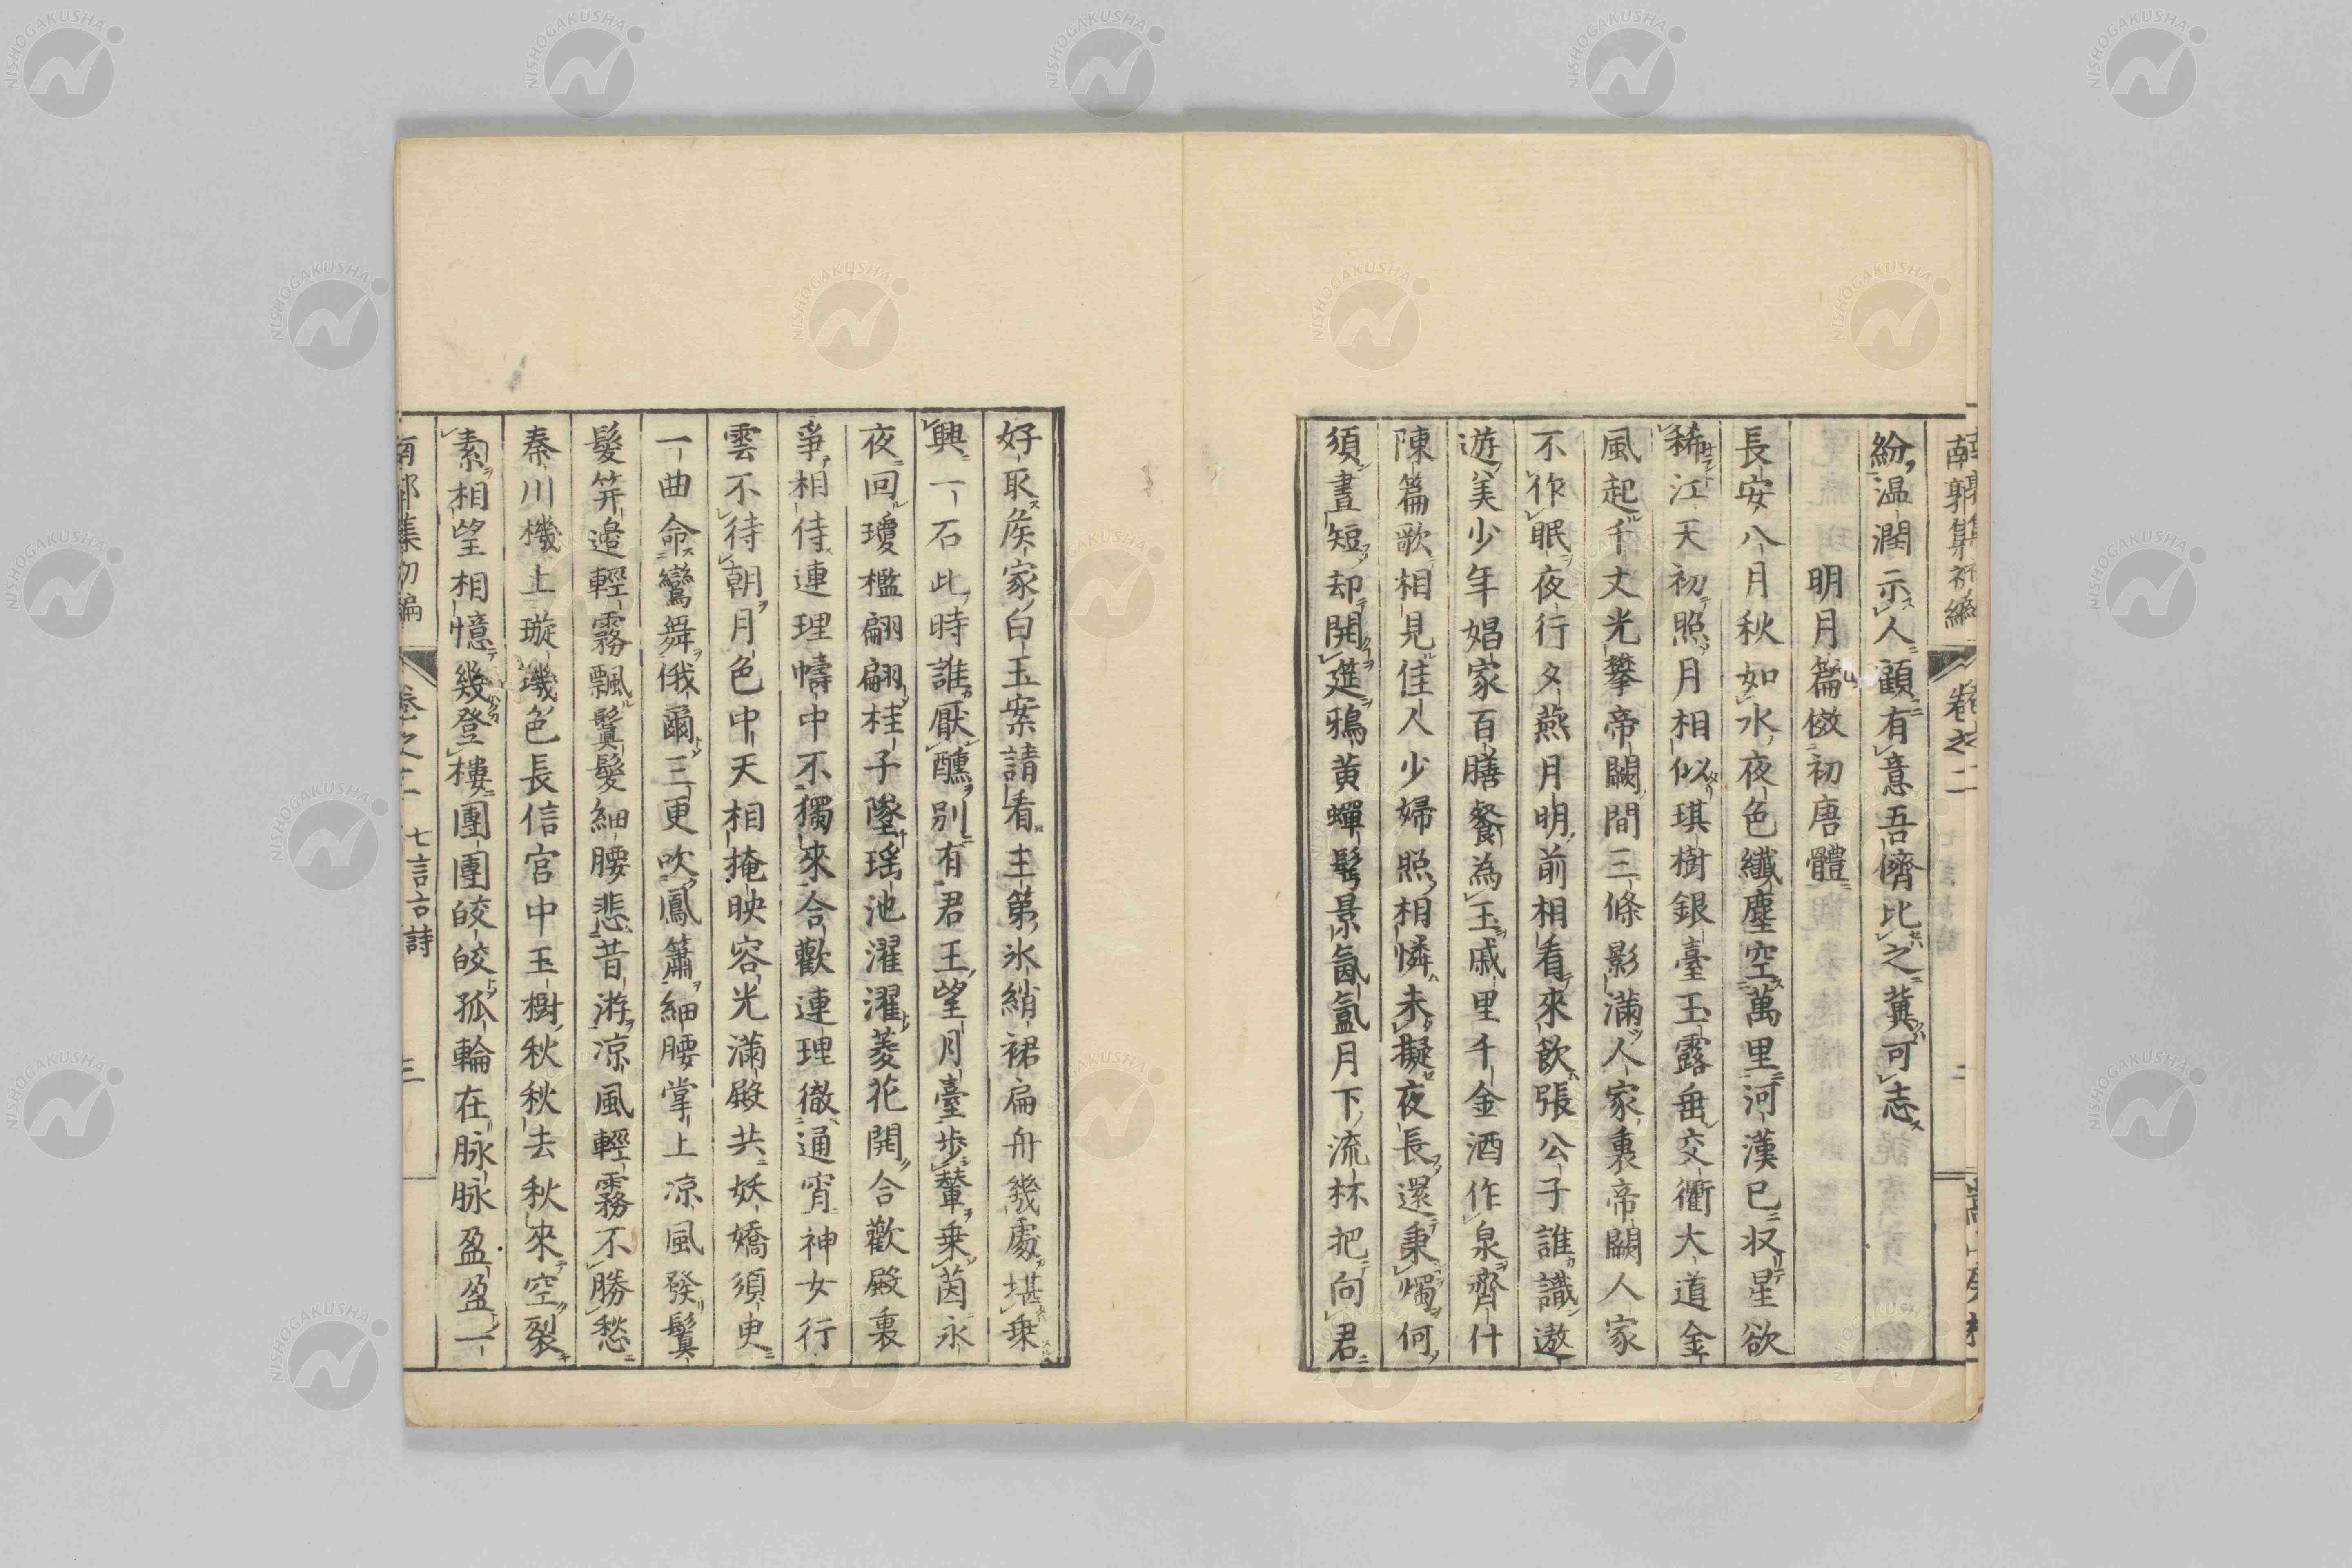 南郭集初編 卷之二 二
紛温潤示人顧有意吾儕比之冀可志
明月篇倣初唐體
長安八月秋如水夜色纖塵空萬里河漢已收星欲
稀江天初照月相似琪樹銀臺玉露垂交衢大道金
風起千丈光攀帝闕間三條影滿人家裏帝闕人家
不作眠夜行夕燕月明前相看來飲張公子誰識遨
遊美少年娼家百膳餐為玉戚里千金酒作泉齊什
陳篇歌相見佳人少婦照相憐未擬夜長還秉燭何
須晝短却開筵鴉黃蟬鬢景氤氳月下流杯把向君
好取侯家白玉案請看主第氷綃裙扁舟幾處堪乗
興一石此時誰厭醺別有君王望月臺步輦乗茵永
夜回瓊檻翩翩桂子墜瑶池濯濯菱花開合歡殿裏
爭相侍連理幬中不獨來合歡連理徹通宵神女行
雲不待朝月色中天相掩映容光滿殿共妖嬌須臾
一曲命鸞舞俄爾三更吹鳳簫細腰掌上凉風發鬒
髮笄邉輕霧飄鬒髮細腰悲昔遊凉風輕霧不勝愁
秦川機上璇璣色長信宮中玉樹秋秋去秋來空裂
素相望相憶幾登樓團團皎皎孤輪在脉脉盈盈一
南郭集初編 卷之二 七言古詩 三
NISHOGAKUSHA